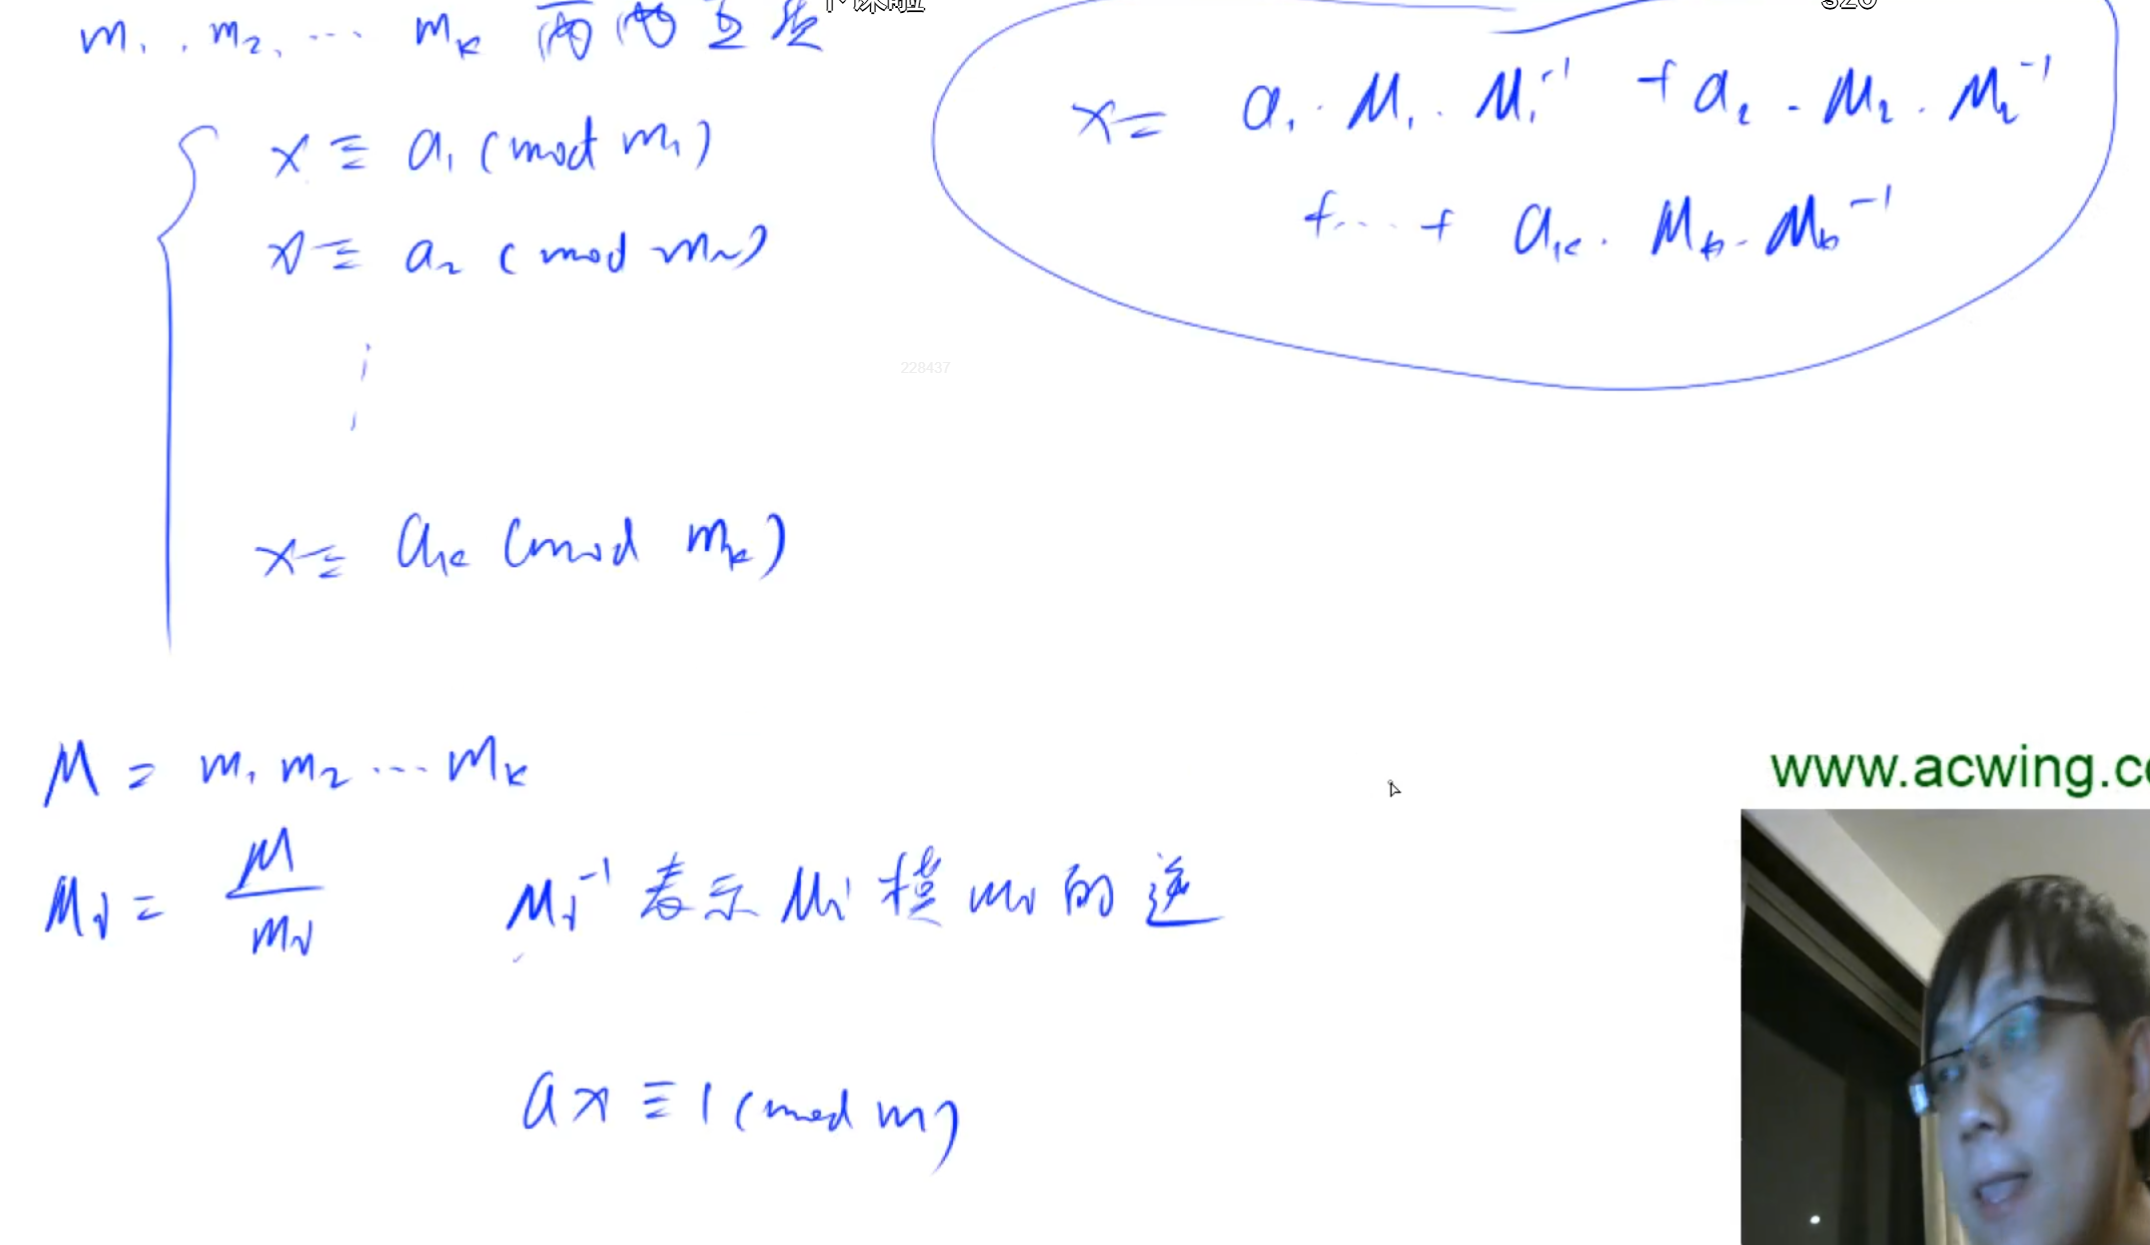 m₁, m₂, ... mₖ 两两互质
x ≡ a₁ (mod m₁)
x ≡ a₂ (mod m₂)
x ≡ aₖ (mod mₖ)
x = a₁·M₁·M₁⁻¹ + a₂·M₂·M₂⁻¹
+...+ aₖ·Mₖ·Mₖ⁻¹
228437
M = m₁ m₂ ... mₖ
Mᵢ = M / mᵢ
Mᵢ⁻¹ 表示 Mᵢ 模 mᵢ 的逆
ax ≡ 1 (mod m)
www.acwing.c